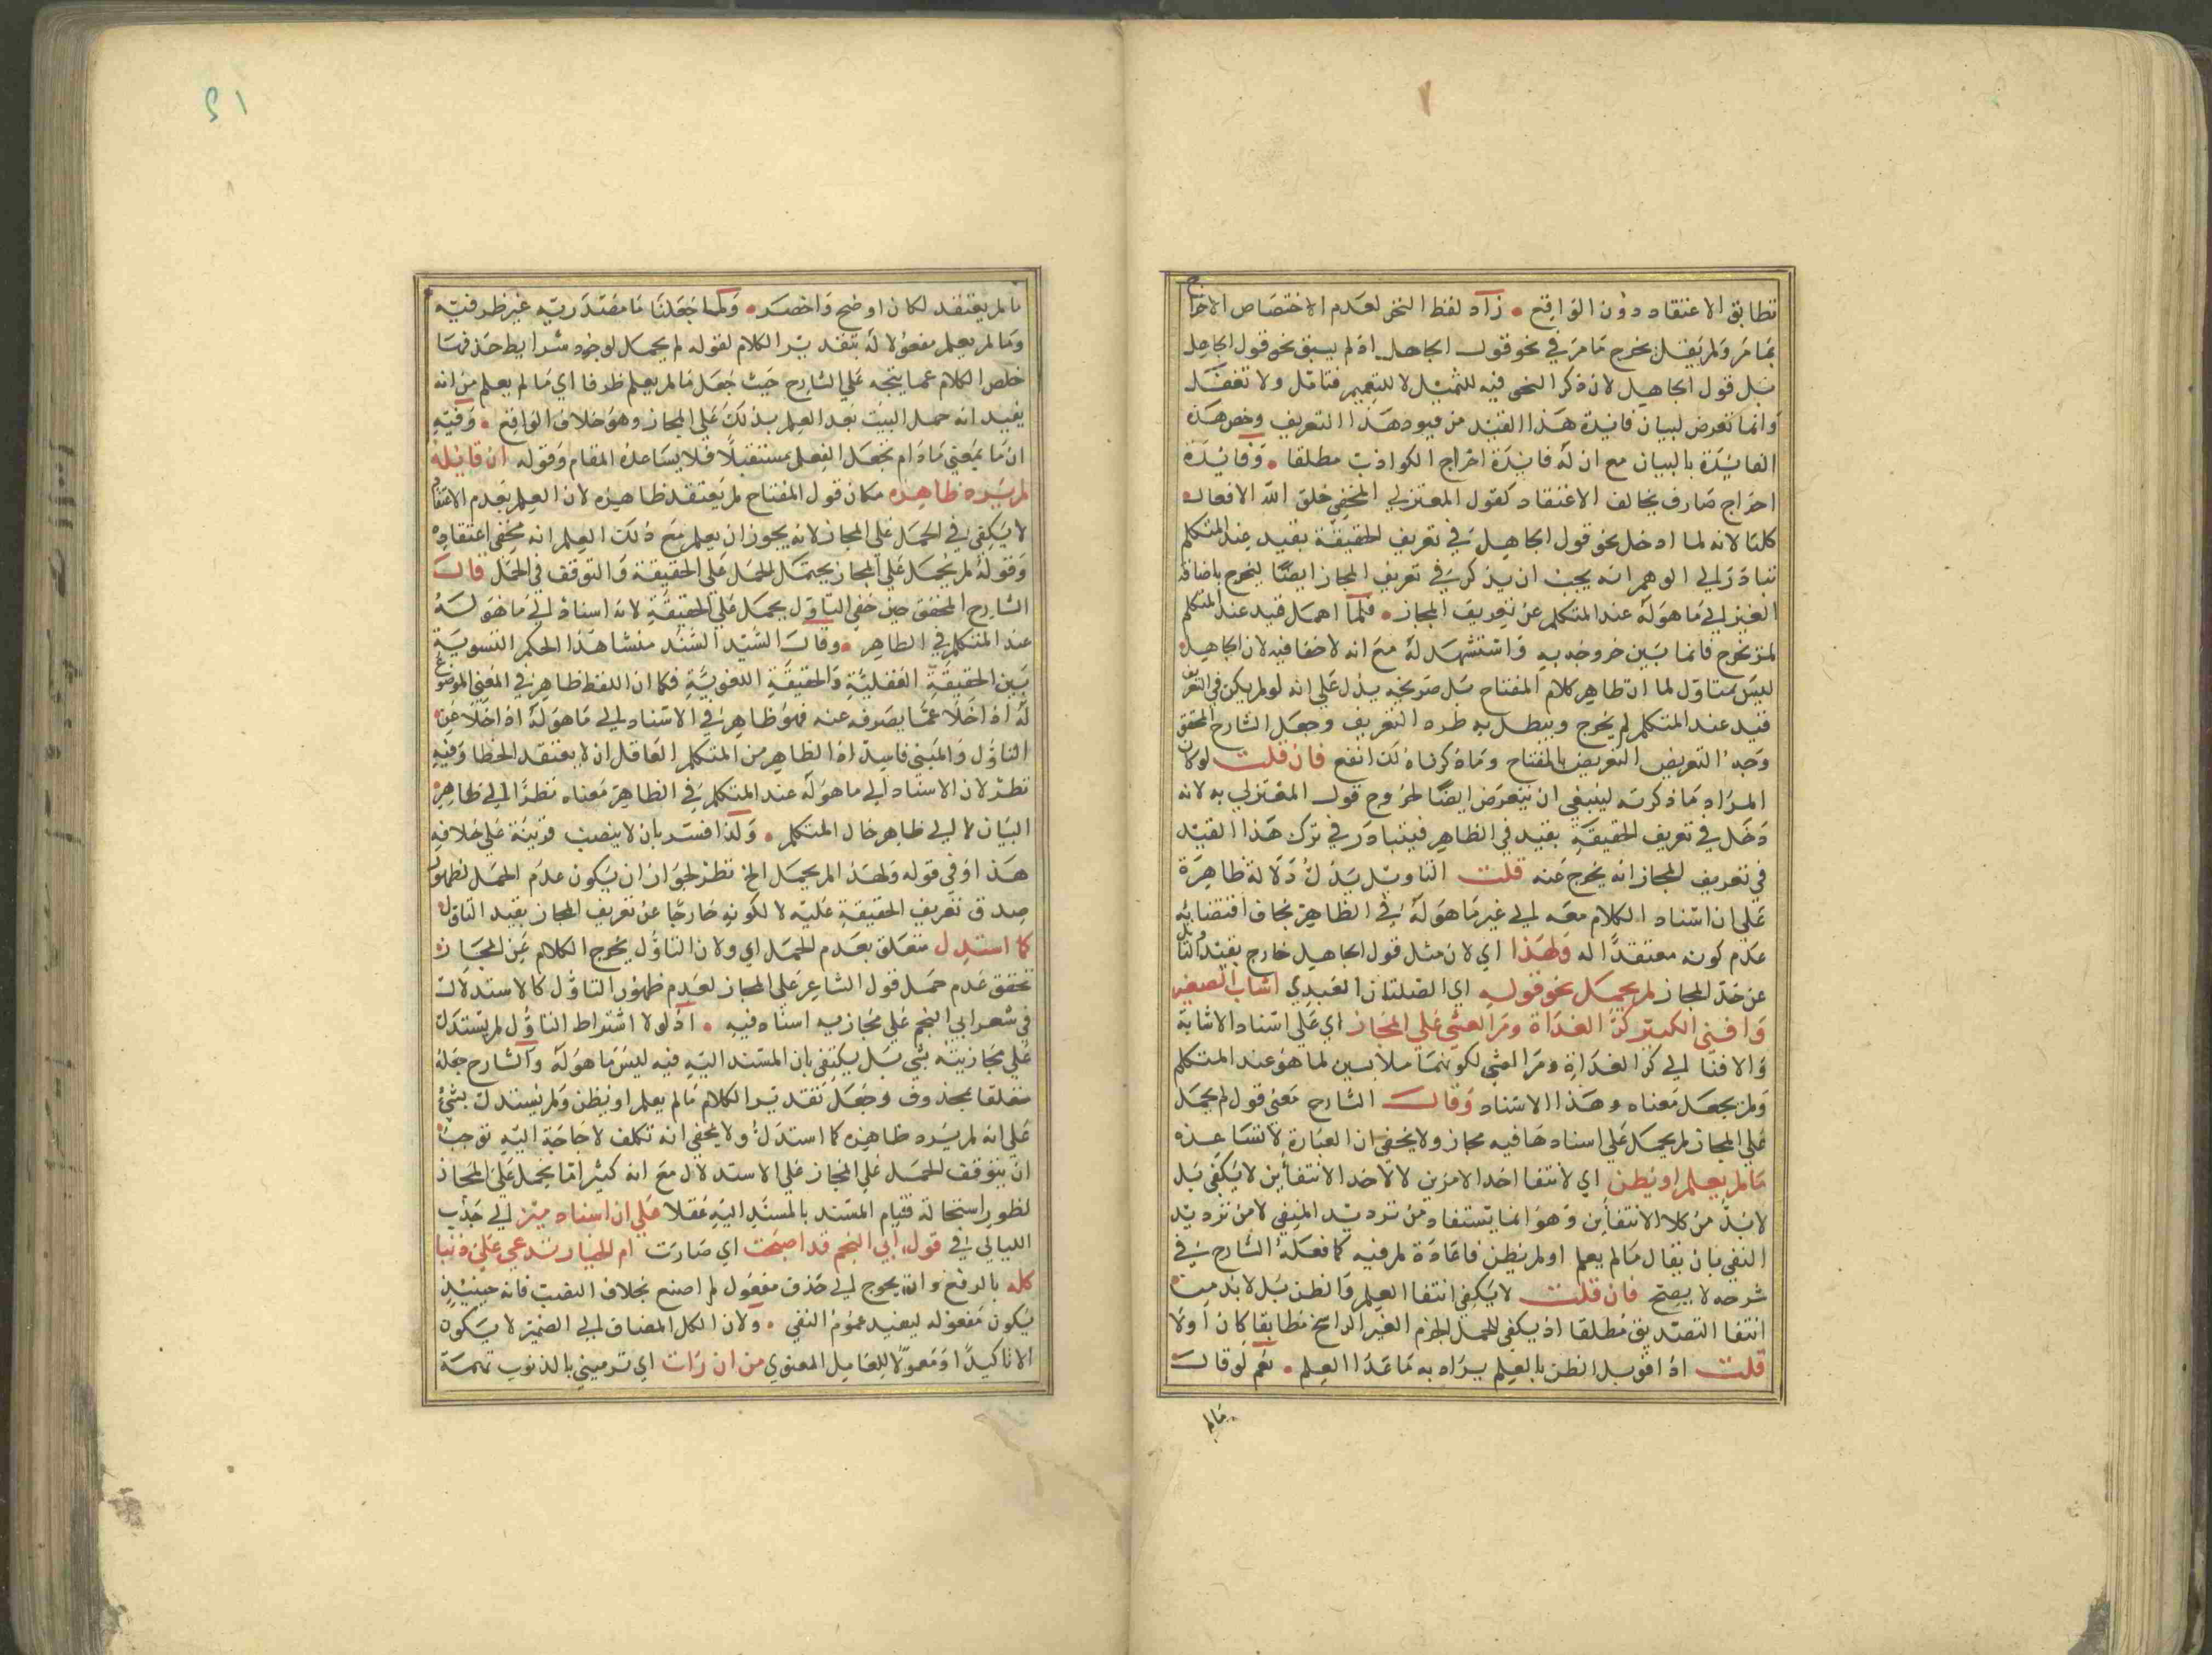 تطابق الاعتقاد دون الواقع • زاد لفظ النحو لعدم الاختصاص الاخراج
بما مر ولم يقل يخرج ما مر في نحو قول الجاهل اذ لم يسبق نحو قول الجاهل
بل قول الجاهل لان ذكر النحو فيه للتمثيل لا للتعميم فتامل ولا تغفل
وانما تعرض لبيان فائدة هذا القيد من قيود هذا التعريف وخص هذه
الفائدة بالبيان مع ان له فائدة اخراج الكواذب مطلقا • وفائدة
اخراج صارف يخالف الاعتقاد كقول المعتزلي المخفي خلق الله الافعال
كلها لانه لما ادخل نحو قول الجاهل في تعريف الحقيقة بقيد عند المتكلم
تبادر الي الوهم انه يجب ان يذكر في تعريف المجاز ايضا ليخرج باضافة
الغير الي ما هو له عند المتكلم عن تعريف المجاز • فلما اهمل قيد عند المتكلم
لم يخرج فانما بين خروجه به واستشهد له مع انه لا خفا فيه لان الجاهل
ليس بمتاول لما ان ظاهر كلام المفتاح بل صريحه يدل علي انه لو لم يكن في التعريف
قيد عند المتكلم لم يخرج ويبطل به طرد التعريف وجعل الشارح المحقق
وجه التعريض التعريض بالمفتاح وما ذكرناه لك انفع فان قلت لو كان
المراد ما ذكرته لينبغي ان يتعرض ايضا لخروج قول المعتزلي به لانه
دخل في تعريف الحقيقة بقيد في الظاهر فيتبادر في ترك هذا القيد
في تعريف المجاز انه يخرج عنه قلت التاويل يدل دلالة ظاهرة
علي ان اسناد الكلام معه الي غير ما هو له في الظاهر بخلاف اقتضائه
عدم كونه معتقدا له ولهذا اي لان مثل قول الجاهل خارج بقيد التاول
عن حد المجاز لم يحمل نحو قوله اي الصلتان العبدي اشاب الصغير
وافني الكبير كر الغداة ومر العشي علي المجاز اي علي اسناد الاشابة
والافنا الي كر الغداة ومر العشي لكونهما ملابسين لما هو عند المتكلم
ولم يجعل معناه وهذا الاسناد وقال الشارح معني قول لم يحمل
علي المجاز لم يحمل علي اسناد هما فيه مجاز ولا يخفي ان العبارة لا تساعده
ما لم يعلم او يظن اي لانتفا احد الامرين لا لاحد الانتفائين لا يكفي بل
لا بد من كلا الانتفائين وهو انما يستفاد من ترديد المنفي لا من ترديد
النفي بان يقال ما لم يعلم او لم يظن فاعادة لم فيه كما فعله الشارح في
شرحه لا يصح فان قلت لا يكفي انتفا العلم والظن بل لا بد من
انتفا التصديق مطلقا اذ يكفي للحمل الجزم الغير الراسخ مطابقا كان اولا
قلت اذا قوبل الظن بالعلم يراد به ما عدا العلم • نعم لو قال
ما لم
٢١
ما لم يعتقد لكان اوضح واخصر • ولما جعلنا ما مصدرية غير ظرفية
وما لم يعلم مفعولا له بتقدير الكلام لقوله لم يحمل لوجود شرايط حذفها
خلص الكلام عما يتجه علي الشارح حيث جعل ما لم يعلم ظرفا اي ما لم يعلم من انه
يفيد انه حمل البيت بعد العلم بذلك علي المجاز وهو خلاف الواقع • وفيه
ان ما بمعني ما دام تجعل الفعل مستقبلا فلا يساعده المقام وقوله ان قائله
لم يرده ظاهره مكان قول المفتاح لم يعتقد ظاهره لان العلم بعدم الاعتقاد
لا يكفي في الحمل علي المجاز لانه يجوز ان يعلم مع ذلك العلم انه مخفي اعتقاده
وقوله لم يحمل علي المجاز يحتمل للحمل علي الحقيقة والتوقف في الحمل قال
الشارح المحقق حين خفي التاول يحمل علي الحقيقة لانه اسناد الي ما هو له
عند المتكلم في الظاهر • وقال السيد السند منشا هذا الحكم التسوية
بين الحقيقة العقلية والحقيقة اللغوية فكما ان اللفظ ظاهر في المعني الموضوع
له اذا خلا عما يصرفه عنه فهو ظاهر في الاسناد الي ما هو له اذا خلا عن
التاول والمبني فاسد اذ الظاهر من المتكلم العاقل ان لا يعتقد الخطا وفيه
نظر لان الاسناد الي ما هو له عند المتكلم في الظاهر معناه نظرا الي ظاهر
البيان لا الي ظاهر حال المتكلم • ولذا فسر بان لا ينصب قرينة علي خلافه
هذا وفي قوله ولهذا لم يحمل الخ نظر لجواز ان يكون عدم الحمل لظهور
صدق تعريف الحقيقة عليه لا لكونه خارجا عن تعريف المجاز بقيد التاول
كما استدل متعلق بعدم للحمل اي ولان التاول يخرج الكلام عن المجاز
تحقق عدم حمل قول الشاعر علي المجاز لعدم ظهور التاول كالاستدلال
في شعر ابي النجم علي مجازية اسناد فيه • اذ لولا اشتراط التاول لم يستدل
علي مجازيته بشي بل يكتفي بان المسند اليه فيه ليس ما هو له والشارح جعله
متعلقا بمحذوف وجعل تقدير الكلام ما لم يعلم او يظن ولم يستدل بشيء
علي انه لم يرد ظاهره كما استدل ولا يخفي انه تكلف لا حاجة اليه توجب
ان يتوقف للحمل علي المجاز علي الاستدلال مع انه كثيرا ما يحمل علي المجاز
لظهور استحالة قيام المسند بالمسند اليه عقلا علي ان اسناد ميز الي جذب
الليالي في قول ابي النجم قد اصبحت اي صارت ام الخيار تدعي علي ذنبا
كله بالرفع وان يحوج الي حذف مفعول لم اصنع بخلاف النصب فانه حينئذ
يكون مفعوله ليفيد عموم النفي • ولان الكل المضاف الي الضمير لا يكون
الا تاكيدا او معمولا للعامل المعنوي من ان رات اي ترميني بالذنوب تهمة